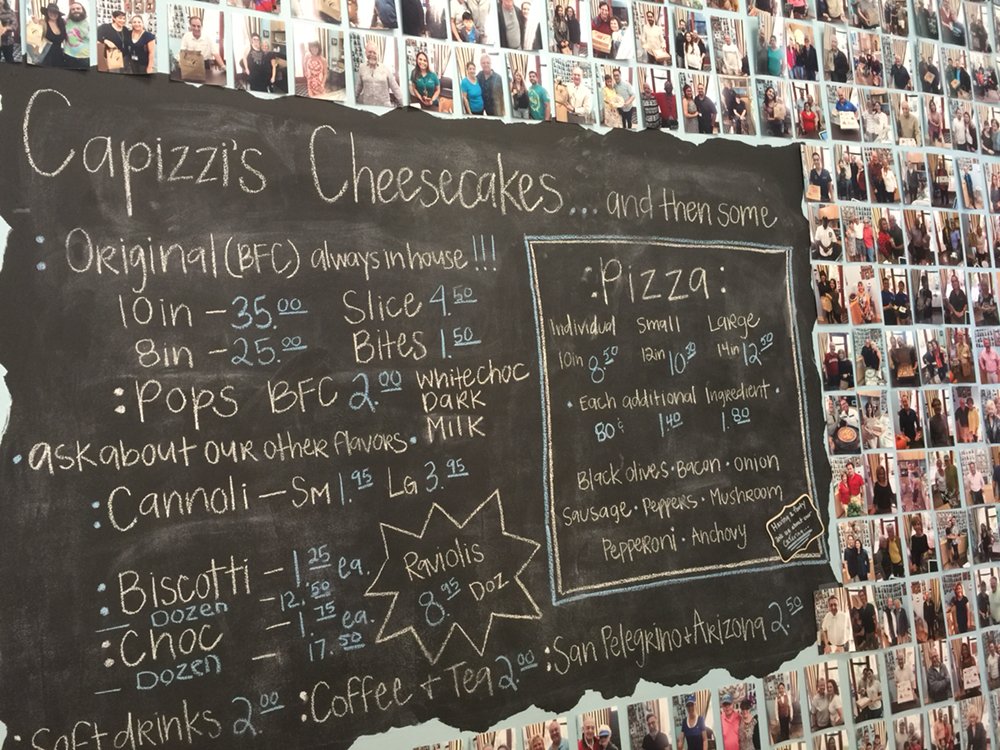 Capizzi's Cheesecakes... and then some
: Original (BFC) always in house!!!
10in - 35.00 Slice 4.50
8in - 25.00 Bites 1.50
: Pops BFC 2.00 White choc
Dark
Milk
• ask about our other flavors •
: Cannoli - Sm 1.95 LG 3.95
: Biscotti - 1.25 ea.
- Dozen - 12.50
: Choc - 1.75 ea.
- Dozen - 17.50
Raviolis
8.95 Doz
: Pizza :
Individual Small Large
10in 8.50 12in 10.50 14in 12.50
• Each additional Ingredient •
80¢ 1.40 1.80
Black olives • Bacon • onion
Sausage • Peppers • Mushroom
Pepperoni • Anchovy
Having a Party
ask us about our
Catering...
Soft drinks 2.00 : Coffee + Tea 2.00 : San Pelegrino + Arizona 2.50